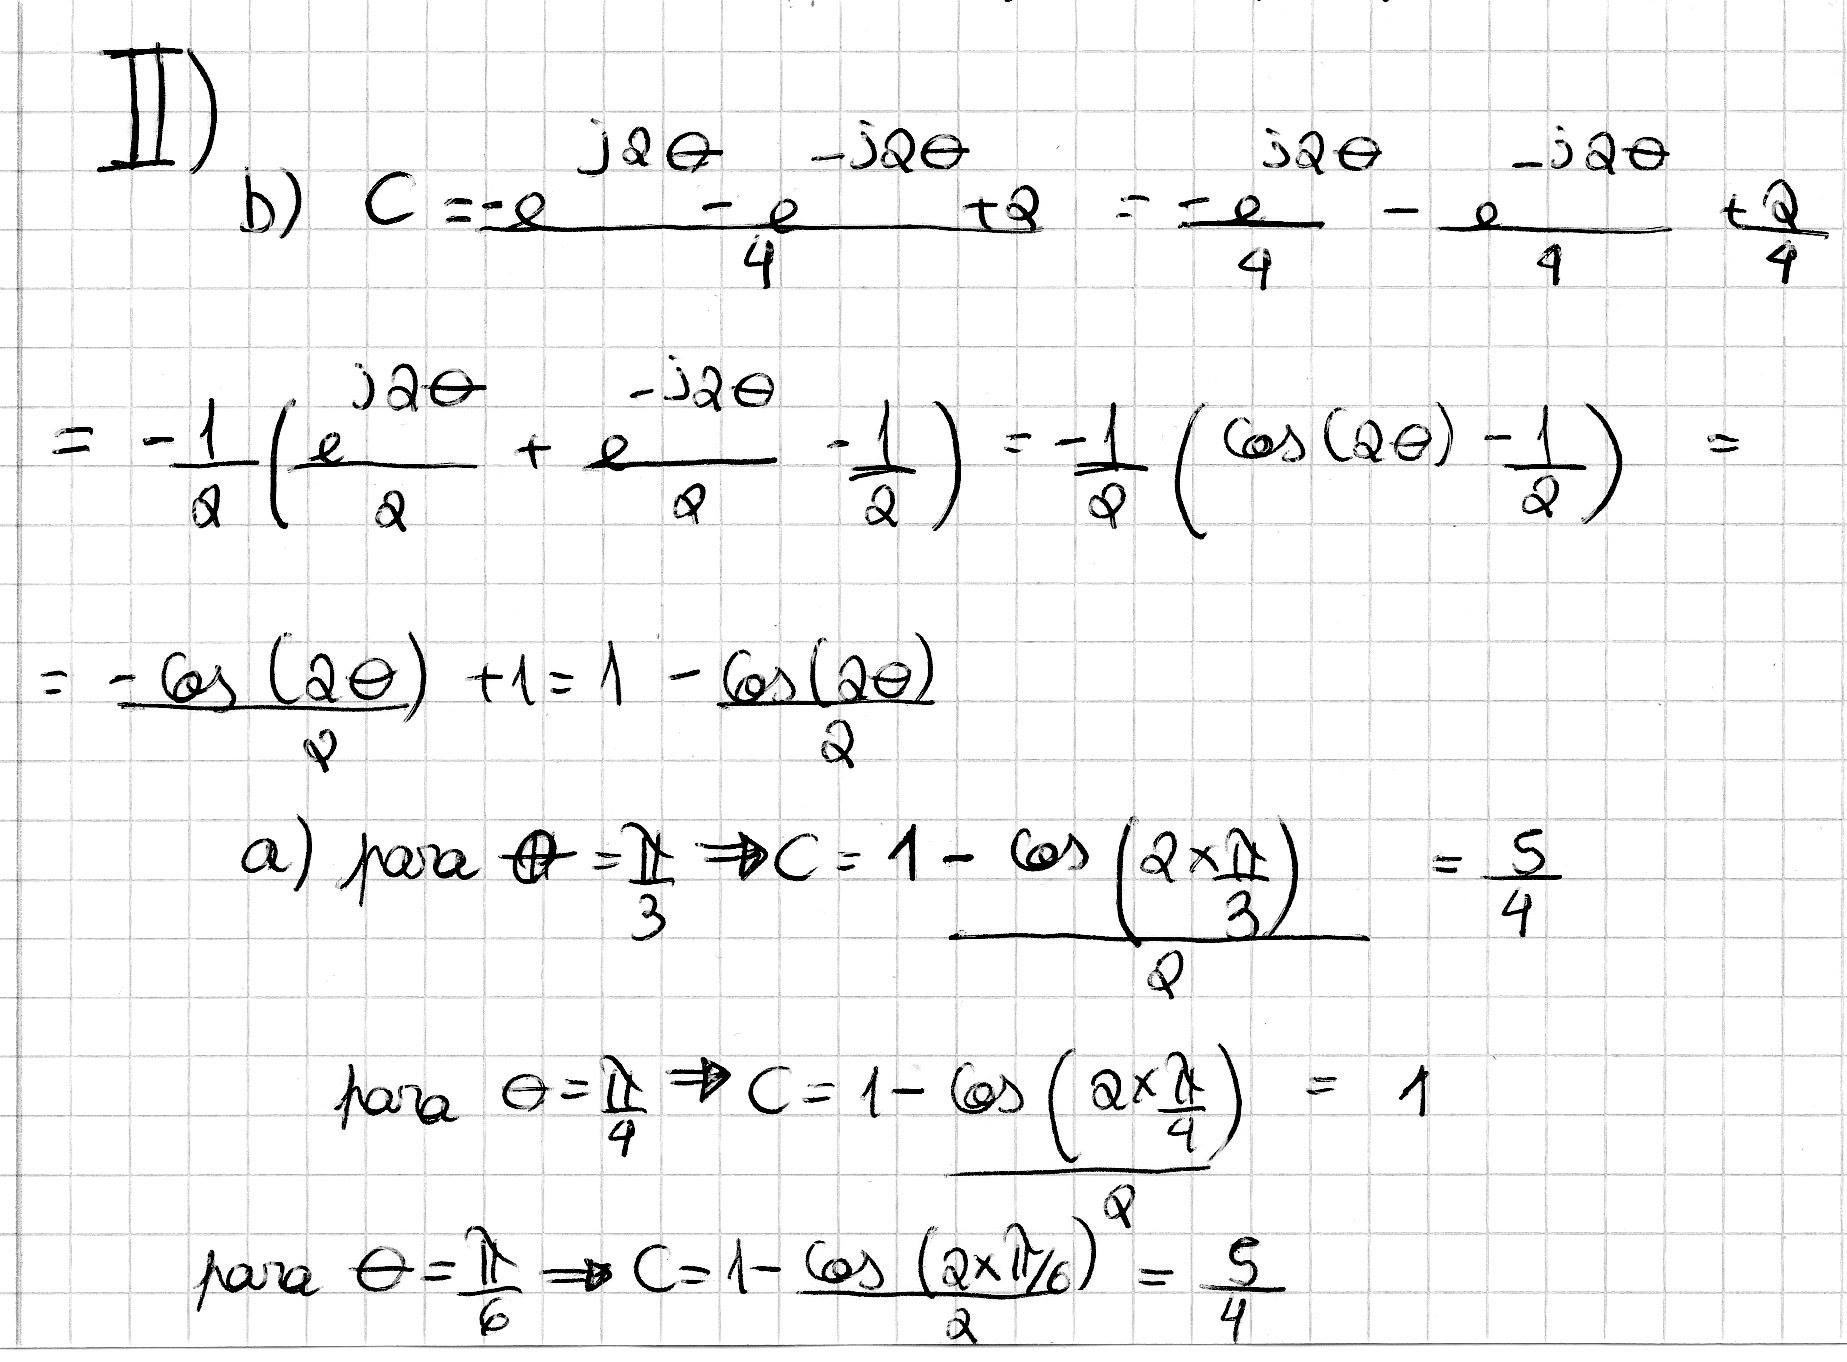 II)
b) C = (-e^{j2θ} - e^{-j2θ} + 2)/4 = -e^{j2θ}/4 - e^{-j2θ}/4 + 2/4
= -1/2 (e^{j2θ}/2 + e^{-j2θ}/2 - 1/2) = -1/2 (cos(2θ) - 1/2) =
= -cos(2θ)/2 + 1 = 1 - cos(2θ)/2
a) para θ = π/3 ⇒ C = 1 - cos(2×π/3)/2 = 5/4
para θ = π/4 ⇒ C = 1 - cos(2×π/4)/2 = 1
para θ = π/6 ⇒ C = 1 - cos(2×π/6)/2 = 5/4